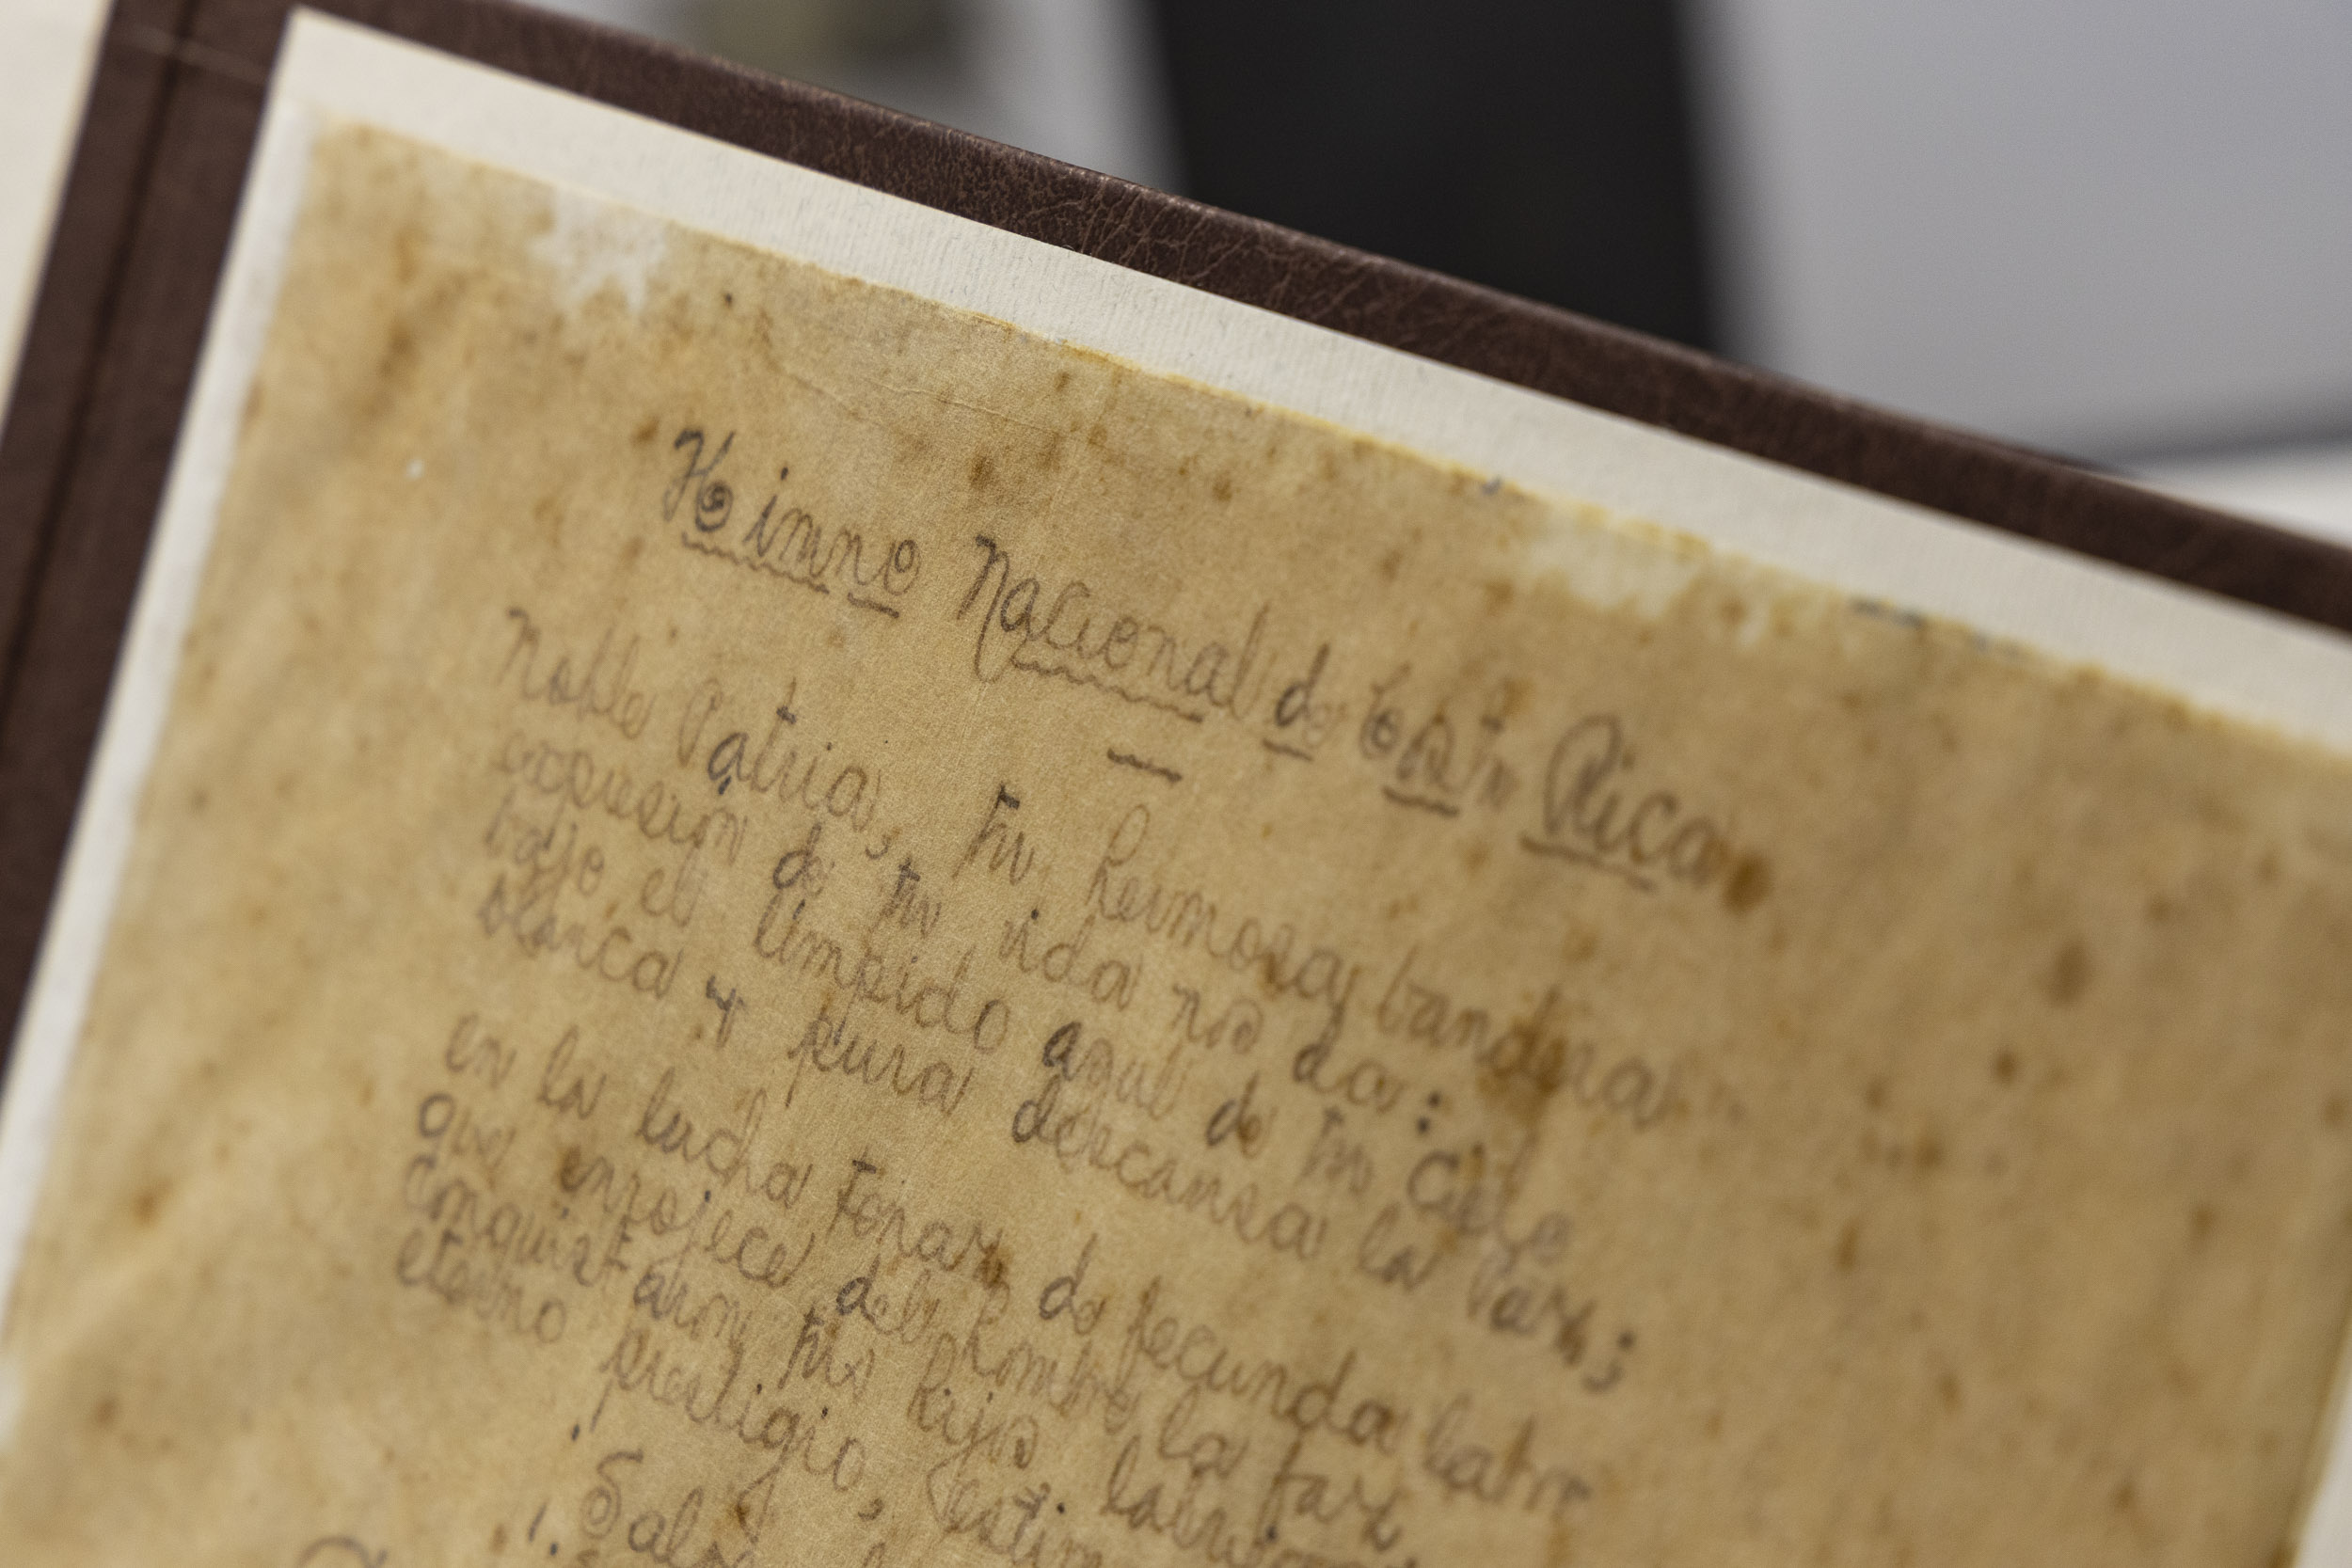 Himno Nacional de Costa Rica
Noble Patria, tu hermosa bandera
expresión de tu vida nos da:
bajo el límpido azul de tu cielo
blanca y pura descansa la Paz;
en la lucha tonaz de fecunda labor
que enrojece del hombre la faz
conquistaron tus hijos labriegos
eterno prestigio, estima
¡Salve